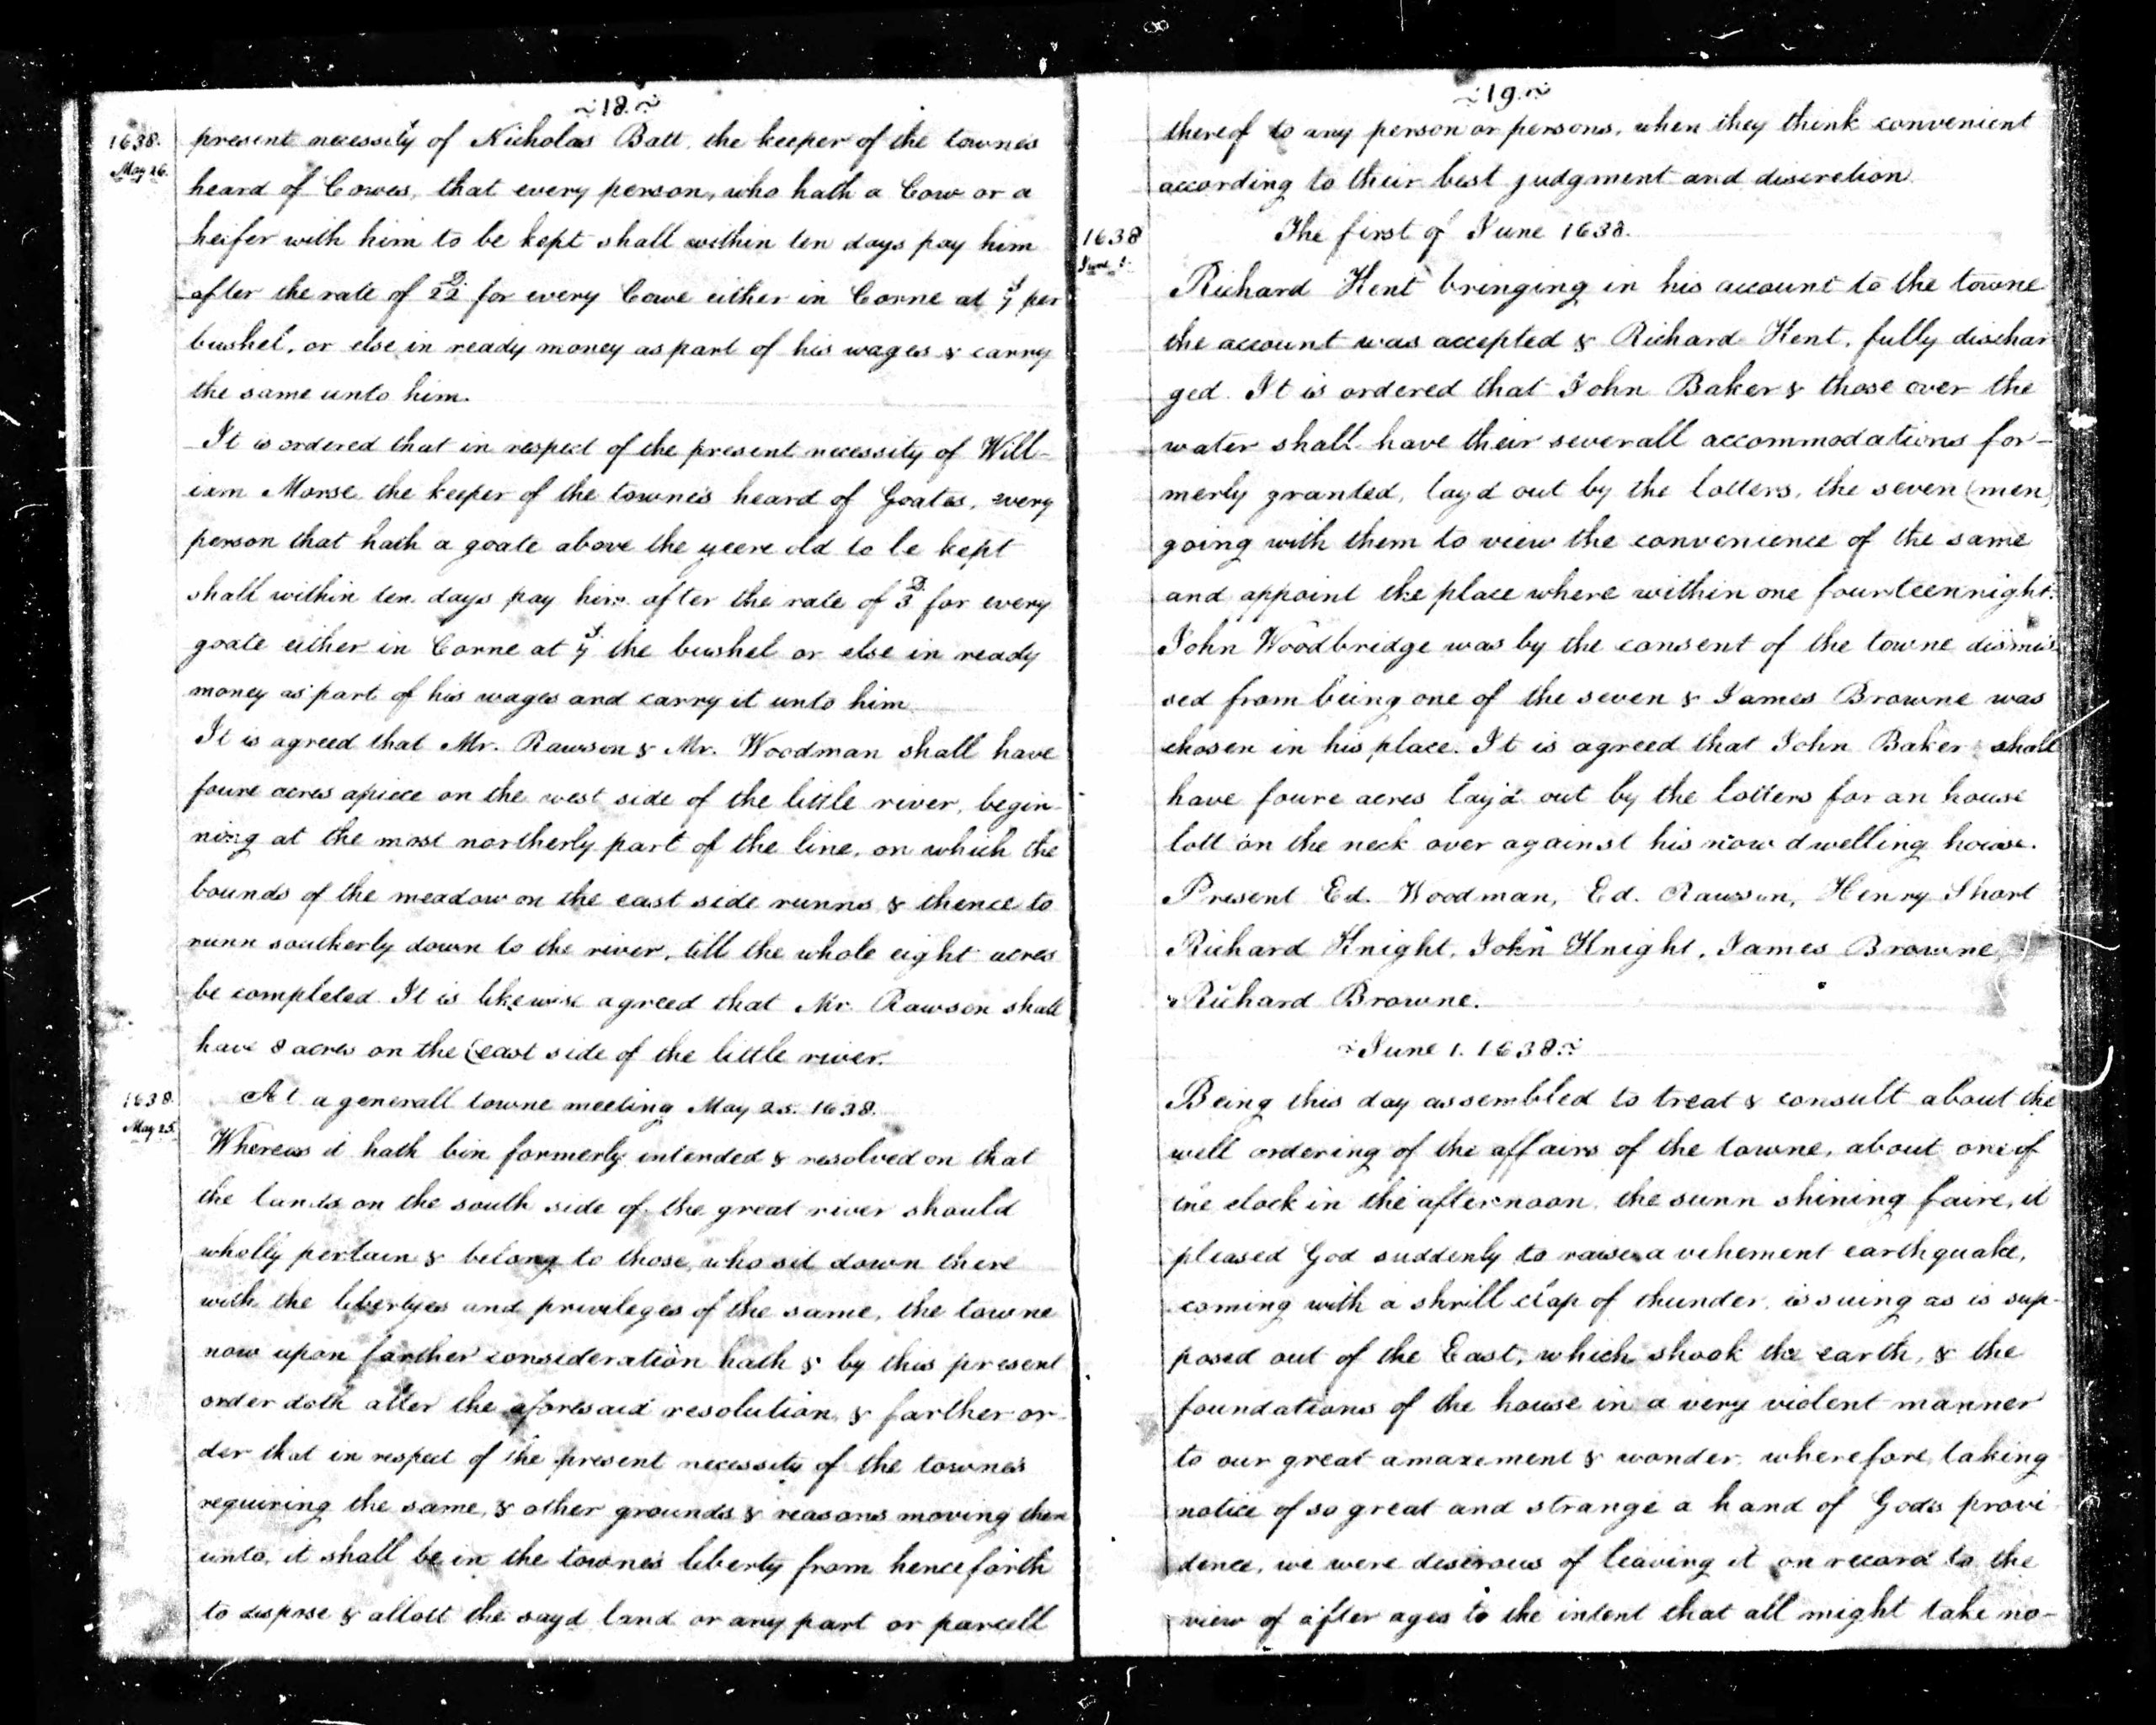 ~18.~
1638.
May 26.
present necessity of Nicholas Batt, the keeper of the townes
heard of Cowes, that every person, who hath a Cow or a
heifer with him to be kept shall within ten days pay him
after the rate of 22 D. for every Cowe either in Corne at 7 s per
bushel, or else in ready money as part of his wages & carry
the same unto him.
It is ordered that in respect of the present necessity of Will-
iam Morse the keeper of the townes heard of Goates, every
person that hath a goate above the yeere old to be kept
shall within ten days pay him after the rate of 3 D. for every
goate either in Corne at 7 s. the bushel or else in ready
money as part of his wages and carry it unto him
It is agreed that Mr. Rawson & Mr. Woodman shall have
foure acres apiece on the west side of the little river, begin-
ning at the most northerly part of the line, on which the
bounds of the meadow on the east side runns & thence to
runn southerly down to the river, till the whole eight acres
be completed. It is likewise agreed that Mr. Rawson shall
have 8 acres on the (east side of the little river.
1638.
May 25.
At a generall towne meeting May 25. 1638.
Whereas it hath bin formerly intended & resolved on that
the lands on the south side of the great river should
wholly pertain & belong to those, who sit down there
with the libertyes and privileges of the same, the towne
now upon farther consideration hath & by this present
order doth alter the aforesaid resolution, & farther or-
der that in respect of the present necessity of the townes
requiring the same, & other grounds & reasons moving there
unto, it shall be in the townes liberty from henceforth
to dispose & allott the sayd land or any part or parcell
~19.~
thereof to any person or persons, when they think convenient
according to their best judgment and discretion.
1638
June 1.
The first of June 1638.
Richard Kent bringing in his account to the towne
the account was accepted & Richard Kent, fully dischar
ged. It is ordered that John Baker & those over the
water shall have their severall accommodations for-
merly granted, layd out by the lotters, the seven (men)
going with them to view the convenience of the same
and appoint the place where within one fourteennight.
John Woodbridge was by the consent of the towne dismis-
sed from being one of the seven & James Browne was
chosen in his place. It is agreed that John Baker shall
have foure acres lay'd out by the lotters for an house
lott on the neck over against his now dwelling house.
Present Ed. Woodman, Ed. Rawson, Henry Short
Richard Knight, John Knight, James Browne,
& Richard Browne.
~June 1. 1638.~
Being this day assembled to treat & consult about the
well ordering of the affairs of the towne, about one of
the clock in the afternoon, the sunn shining faire, it
pleased God suddenly to raise a vehement earthquake,
coming with a shrill clap of thunder, issuing as is sup-
posed out of the East, which shook the earth, & the
foundations of the house in a very violent manner
to our great amazement & wonder, wherefore, taking
notice of so great and strange a hand of Gods provi
dence, we were desirous of leaving it on record to the
view of after ages to the intent that all might take no-